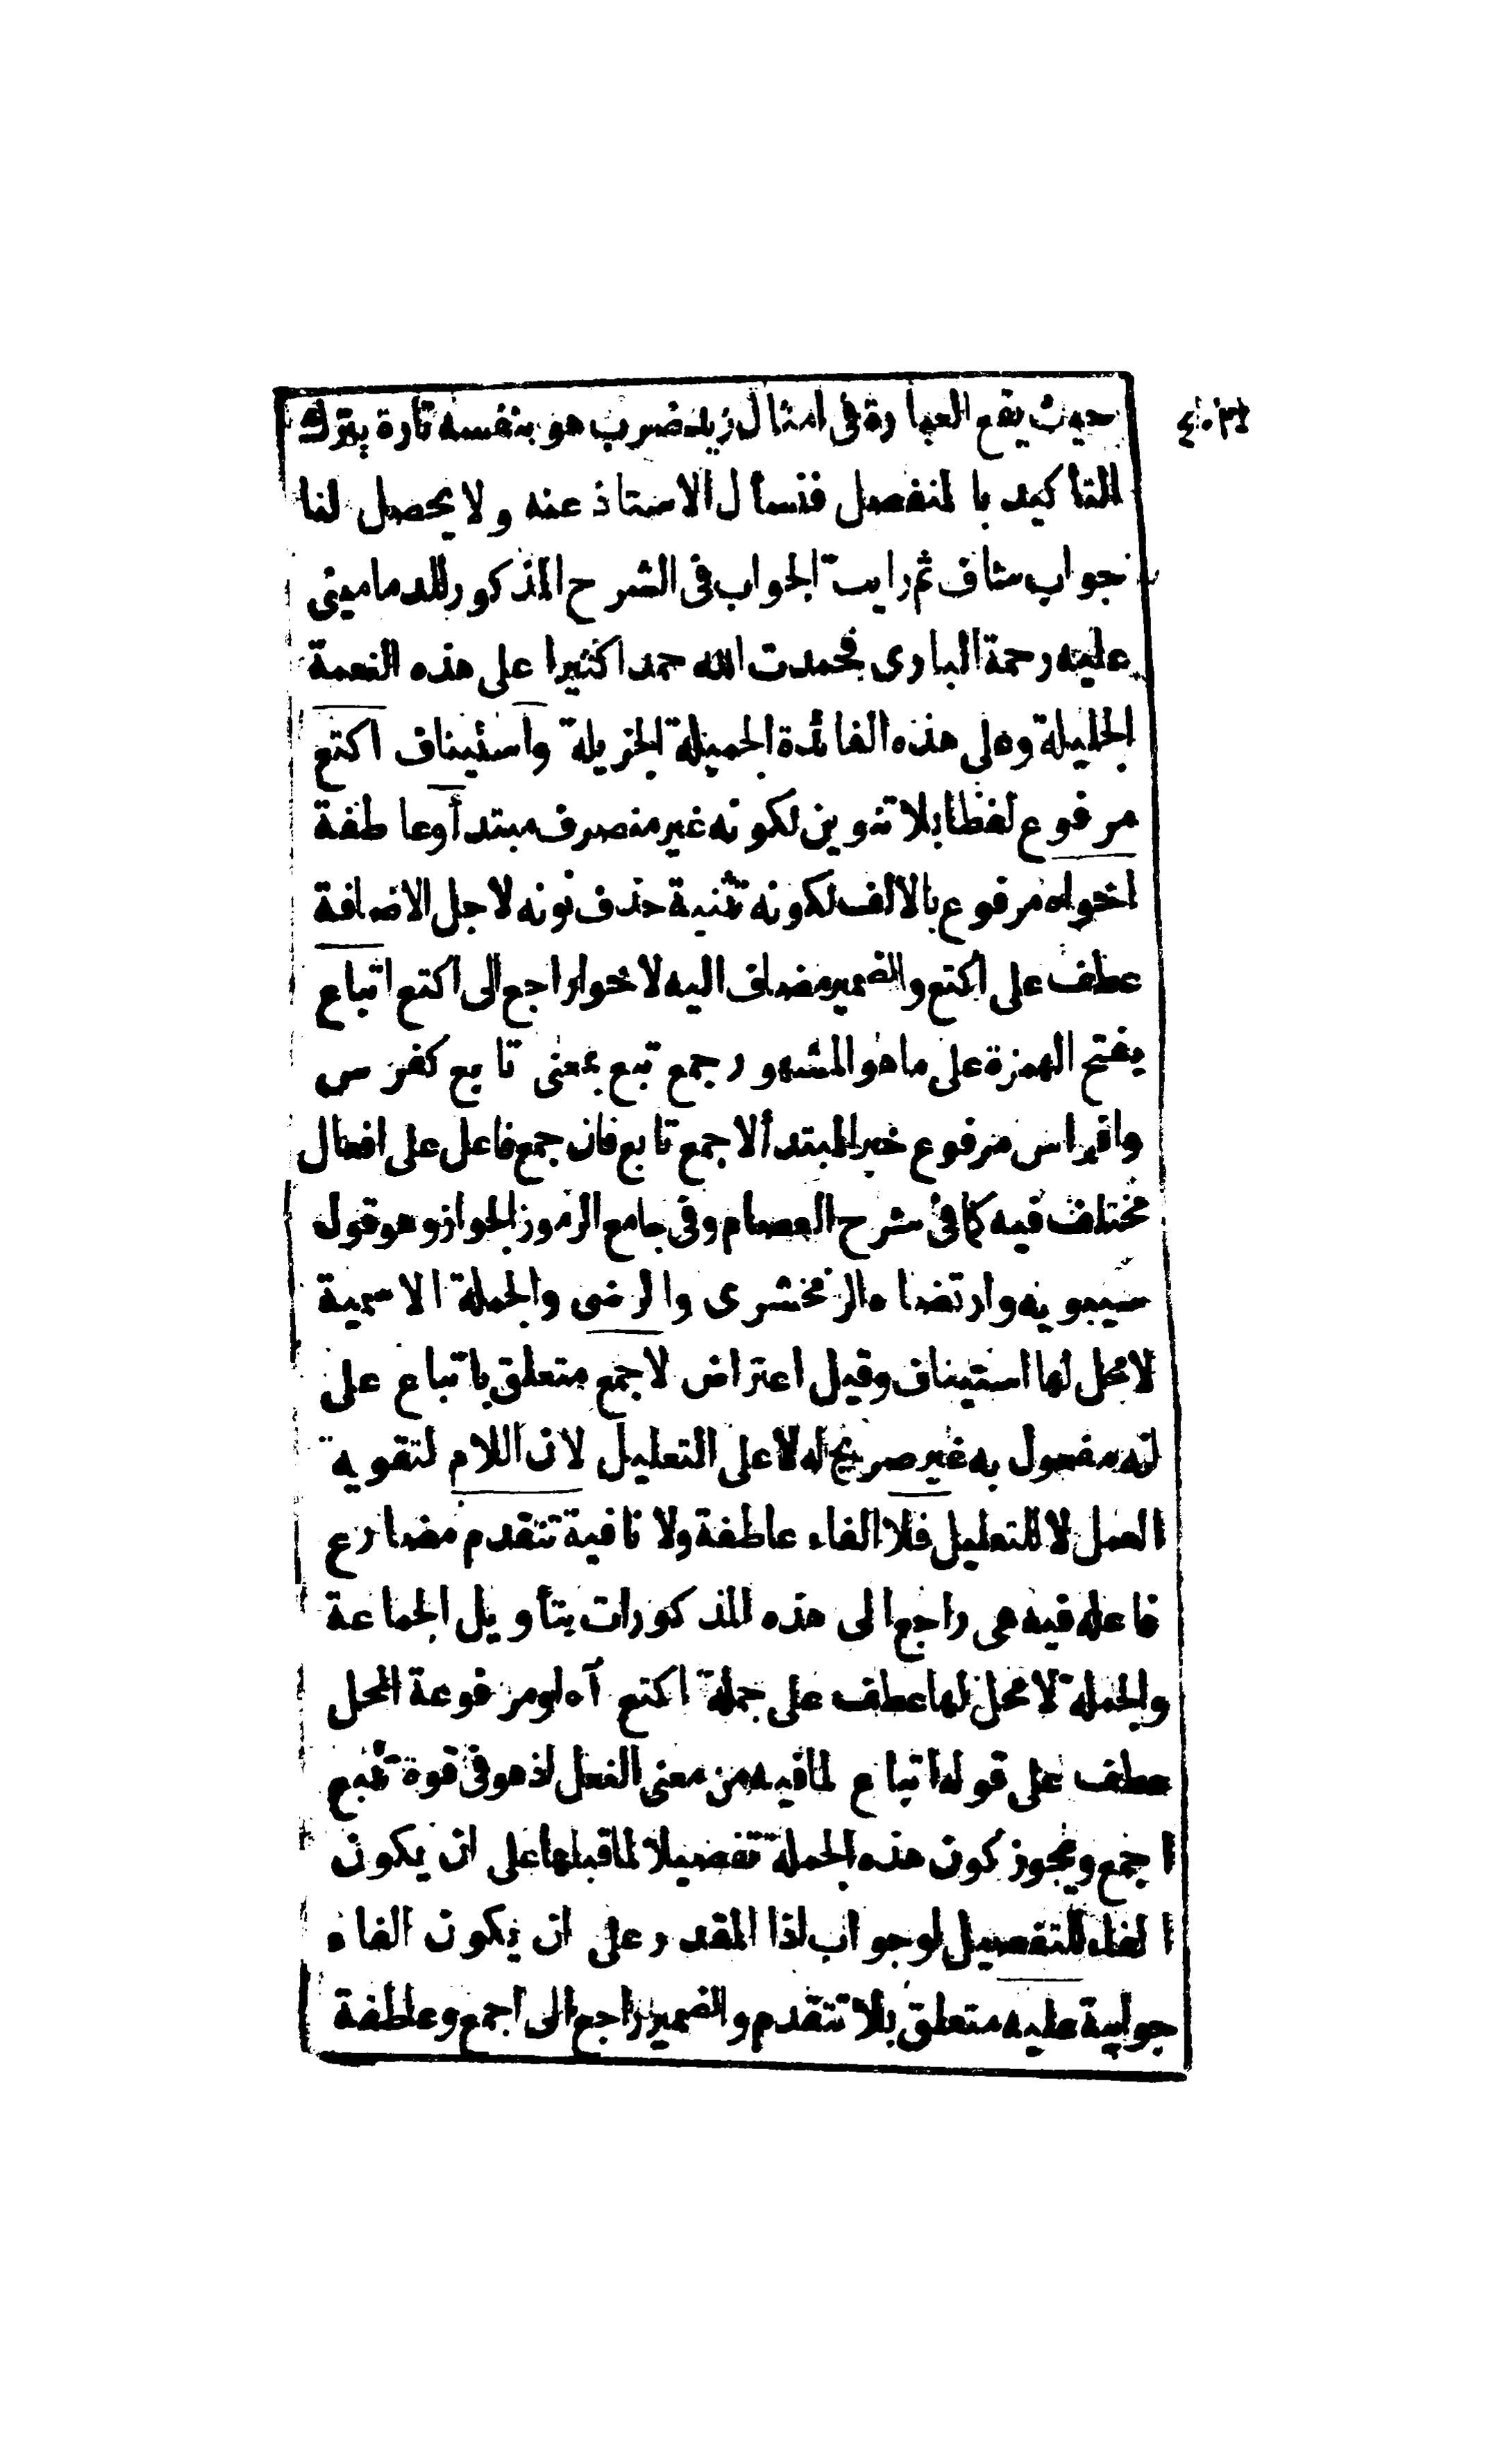 حيث يقع العبارة فى امثال زيد ضرب هو بنفسه تارة بترك
التأكيد بالمنفصل فنسأل الاستاذ عنه ولا يحصل لنا
جواب شاف ثم رايت الجواب فى الشرح المذكور للدمامينى
عليه رحمة البارى فحمدت الله حمدا كثيرا على هذه النعمة
الجليلة وعلى هذه الفائدة الجميلة الجزيلة واستيناف اكتع
مرفوع لفظا بلا تنوين لكونه غير منصرف مبتدأ وعاطفة
اخواه مرفوع بالالف لكونه تثنية حذف نونه لاجل الاضافة
عطف على اكتع والضمير مضاف اليه لاخوا راجع الى اكتع اتباع
بفتح الهمزة على ما هو المشهور جمع تبع بمعنى تابع كفرس
وافراس مرفوع خبر المبتدأ لا جمع تابع فان جمع فاعل على افعال
مختلف فيه كما فى شرح العصام وفى جامع الرموز الجواز وهو قول
سيبويه وارتضاه الزمخشرى والرضى والجملة الاسمية
لا محل لها استيناف وقيل اعتراض لاجمع متعلق باتباع على
انه مفعول به غير صريح له لا على التعليل لان اللام لتقوية
العمل لا للتعليل فلا الفاء عاطفة ولا نافية تتقدم مضارع
فاعله فيه هى راجع الى هذه المذكورات بتأويل الجماعة
والجملة لا محل لها عطف على جملة اكتع آه او مرفوعة المحل
عطف على قوله اتباع لما فيه من معنى الفعل اذ هو فى قوة تتبع
اجمع ويجوز كون هذه الجملة تفصيلا لما قبلها على ان يكون
الفاء للتفصيل او جواب اذا المقدر على ان يكون الفاء
جوابية عليه متعلق بلا تتقدم والضمير راجع الى اجمع وعاطفة